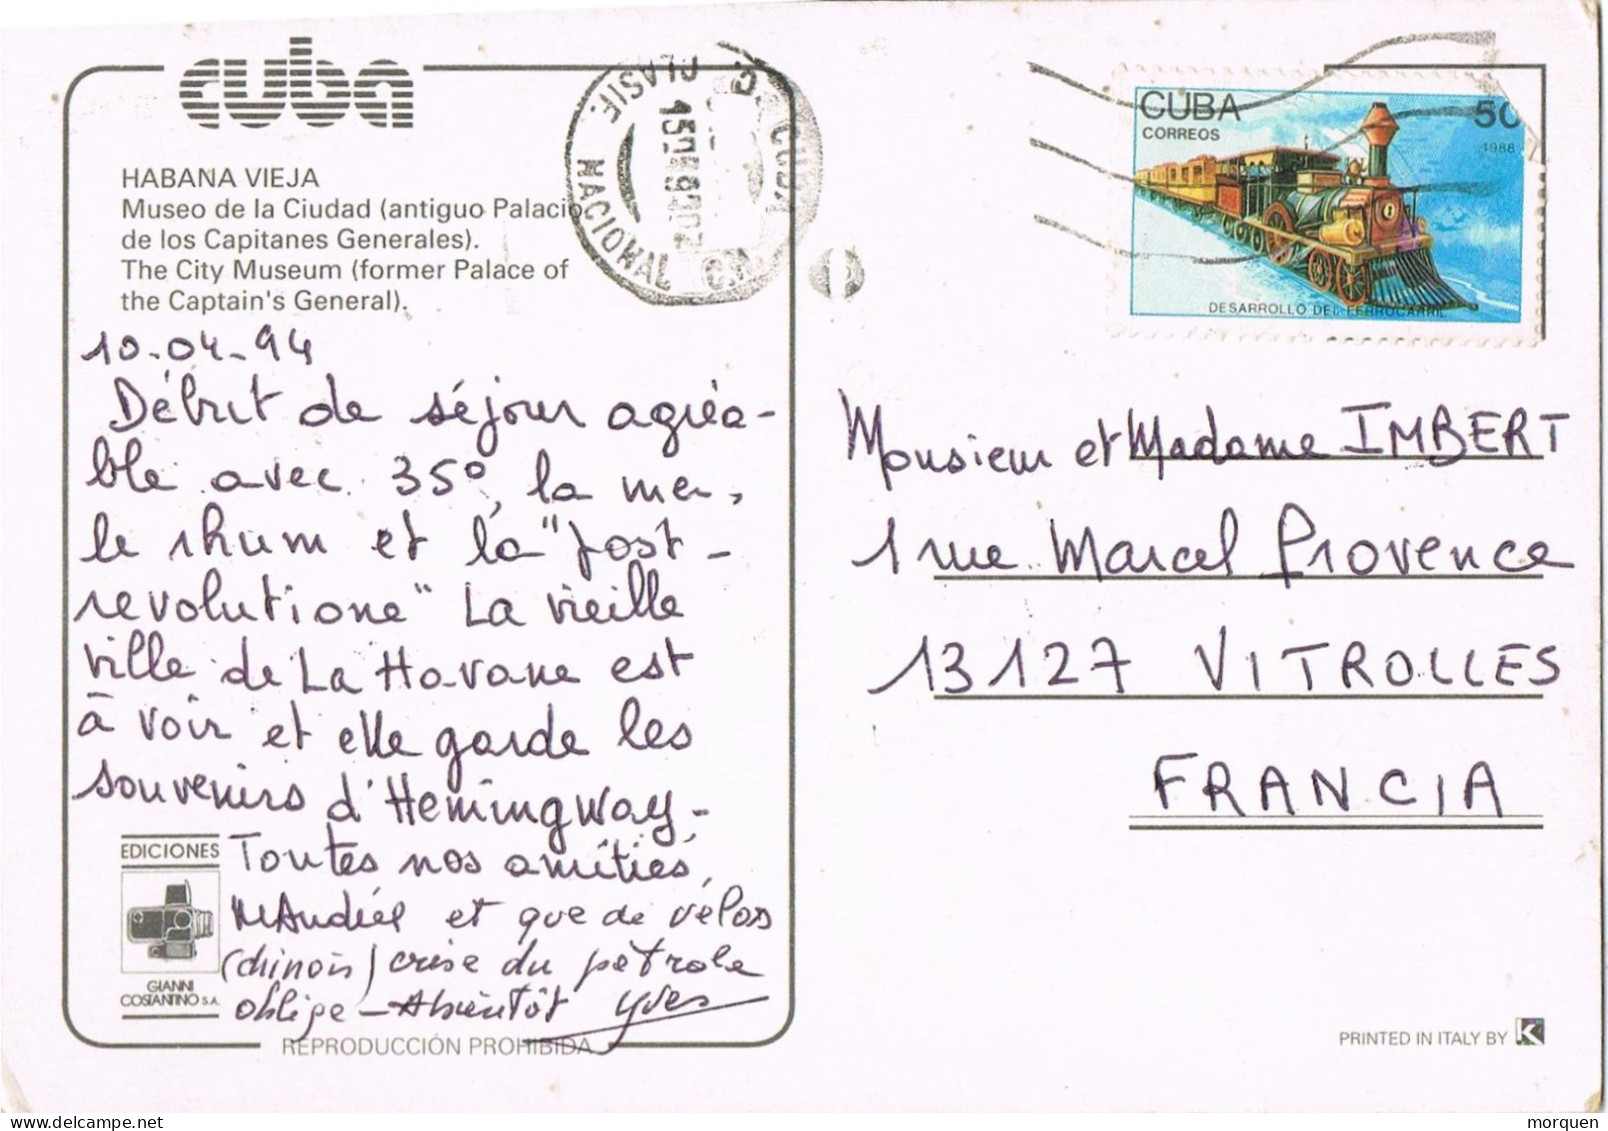 cuba
HABANA VIEJA
Museo de la Ciudad (antiguo Palacio
de los Capitanes Generales).
The City Museum (former Palace of
the Captain's General).
10-04-94
Début de séjour agréa-
ble avec 35°, la mer,
le rhum et la "post-
revolutione" La vieille
ville de La Havane est
à voir et elle garde les
souvenirs d'Hemingway-
Toutes nos amitiés,
et que de vélos
(chinois) crise du pétrole
oblige - A bientôt Yves
EDICIONES
GIANNI
COSTANTINO S.A.
REPRODUCCIÓN PROHIBIDA
CLASIF. NACIONAL
C. CUBA
CUBA
CORREOS
50
1988
DESARROLLO DEL FERROCARRIL
Monsieur et Madame IMBERT
1 rue Marcel Provence
13127 VITROLLES
FRANCIA
PRINTED IN ITALY BY K
morquen